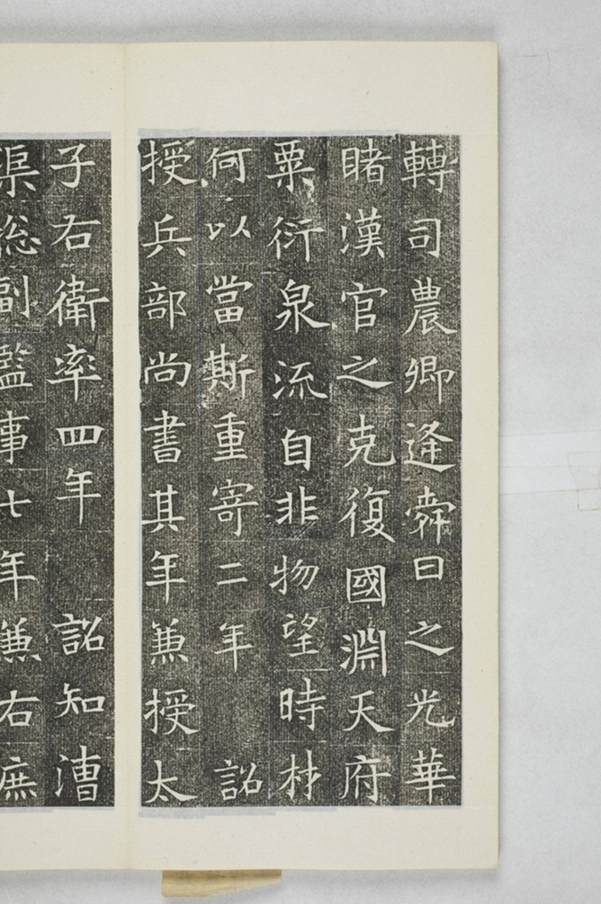 轉司農卿逢舜日之光華
睹漢官之克復國淵天府
粟衍泉流自非物望時材
何以當斯重寄二年 詔
授兵部尚書其年兼授太
子右衛率四年 詔知漕
渠総副監事七年兼右庶